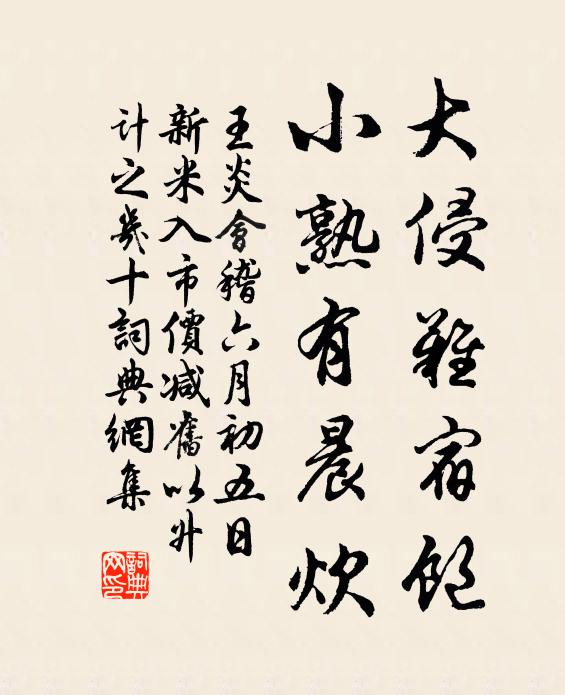 大侵難宿飽
小熟有晨炊
王炎會稽六月初五日
新米入市價减舊以升
計之幾十詞典網集
詞典
网印